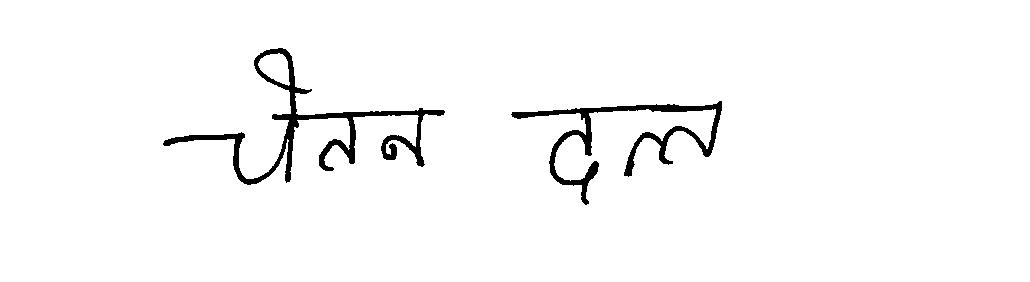 चेतन दल